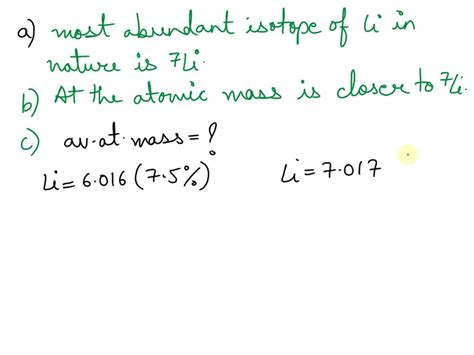 a) most abundant isotope of Li in
nature is ⁷Li.
b) At the atomic mass is closer to ⁷Li.
c) av.at.mass = ?
Li = 6.016 (7.5%) Li = 7.017